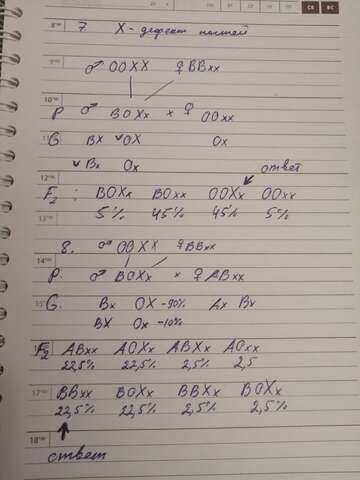 СБ ВС
8
7. X - дефект ногтей
9
♂ OOXX ♀ BBxx
10
P ♂ BOXx x ♀ OOxx
11
G. BX ✓OX Ox
✓ Bx Ox ответ
12
F2 : BOXx BOxx OOXx OOxx
13
5% 45% 45% 5%
8. ♂ OBXX ♀ BBxx
14
P. ♂ BOXx x ♀ ABxx
15
G. Bx OX -90% Ax Bx
BX Ox -10%
F2 ABxx AOXx ABXx AOxx
22,5% 22,5% 2,5% 2,5
17
BBxx BOXx BBXx BOXx
22,5% 22,5% 2,5% 2,5%
18
ответ